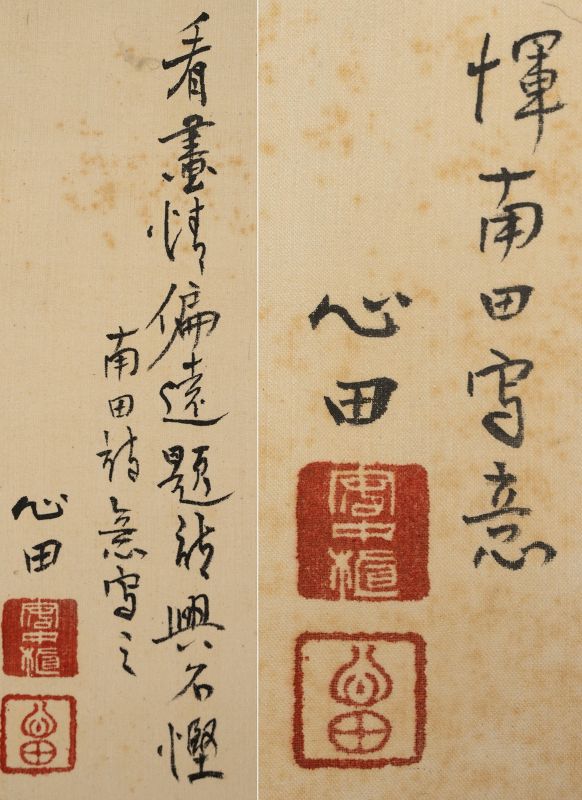 看畫情偏遠題詩興不慳
南田詩意寫之
心田
心田
惲南田寫意
心田
心田